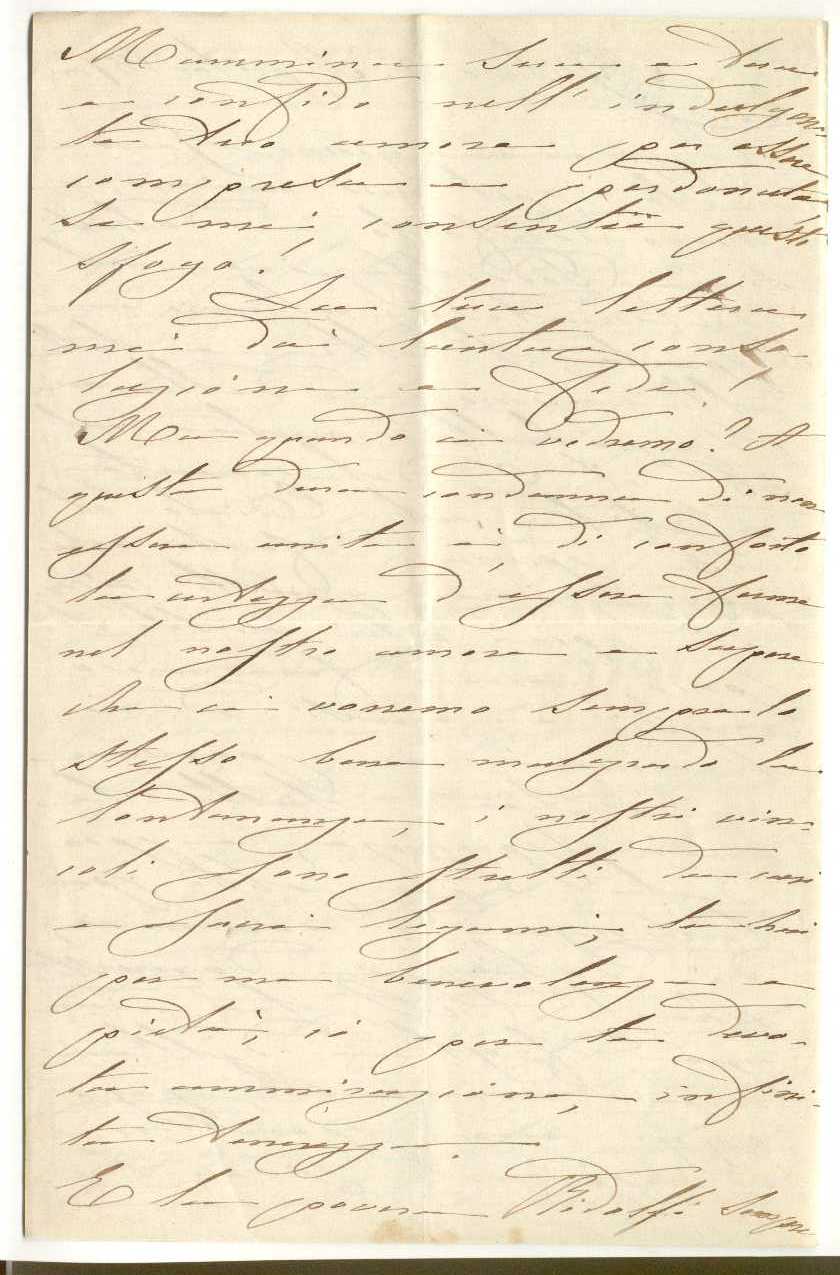 Mammina sua e tua
e confido nell' indulgen-
te tuo amore per essere
compresa e perdonata
se mi consentii questi
sfogo!
La tua lettera
mi dà tanta conso-
lazione e fede!
Ma quando ci vedremo? A
questa dura condanna di non
essere unite è di conforto
la certezza d'essere ferme
nel nostro amore e sapere
che ci vorremo sempre lo
stesso bene malgrado la
lontananza, i nostri vin-
coli sono stretti da cari
e sacri legami, tu hai
per me benevolenza e
pietà, io per te devo-
ta ammirazione, infini-
ta tenerezza.
E la povera Ridolfi sempre